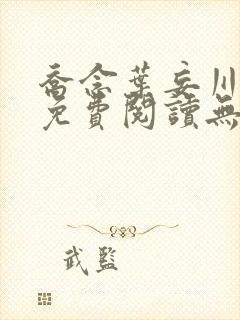 喬念葉妄川
免費閱讀無
武監